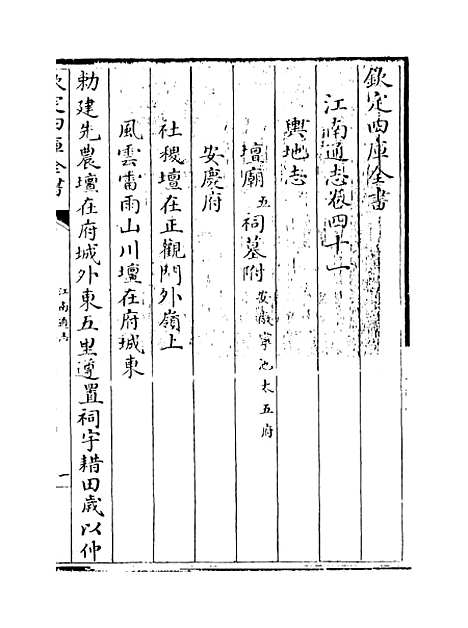 欽定四庫全書
江南通志卷四十一
輿地志
壇廟五祠墓附安徽寧池太五府
安慶府
社稷壇在正觀門外嶺上
風雲雷雨山川壇在府城東
勅建先農壇在府城外東五里遵置祠宇耤田歲以仲
欽定四庫全書
江南通志
一